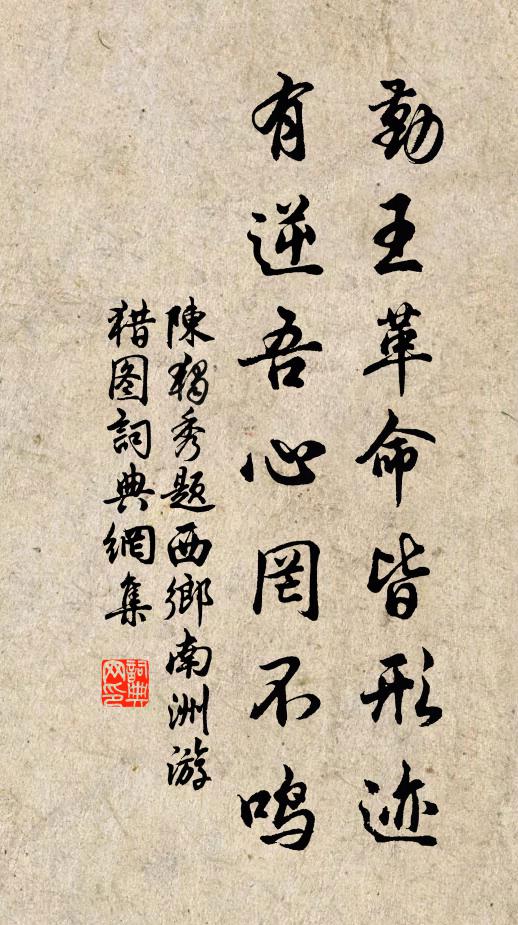 勤王革命皆形迹
有逆吾心罔不鸣
陳獨秀題西鄉南洲游
猎图詞典網集
詞典网印